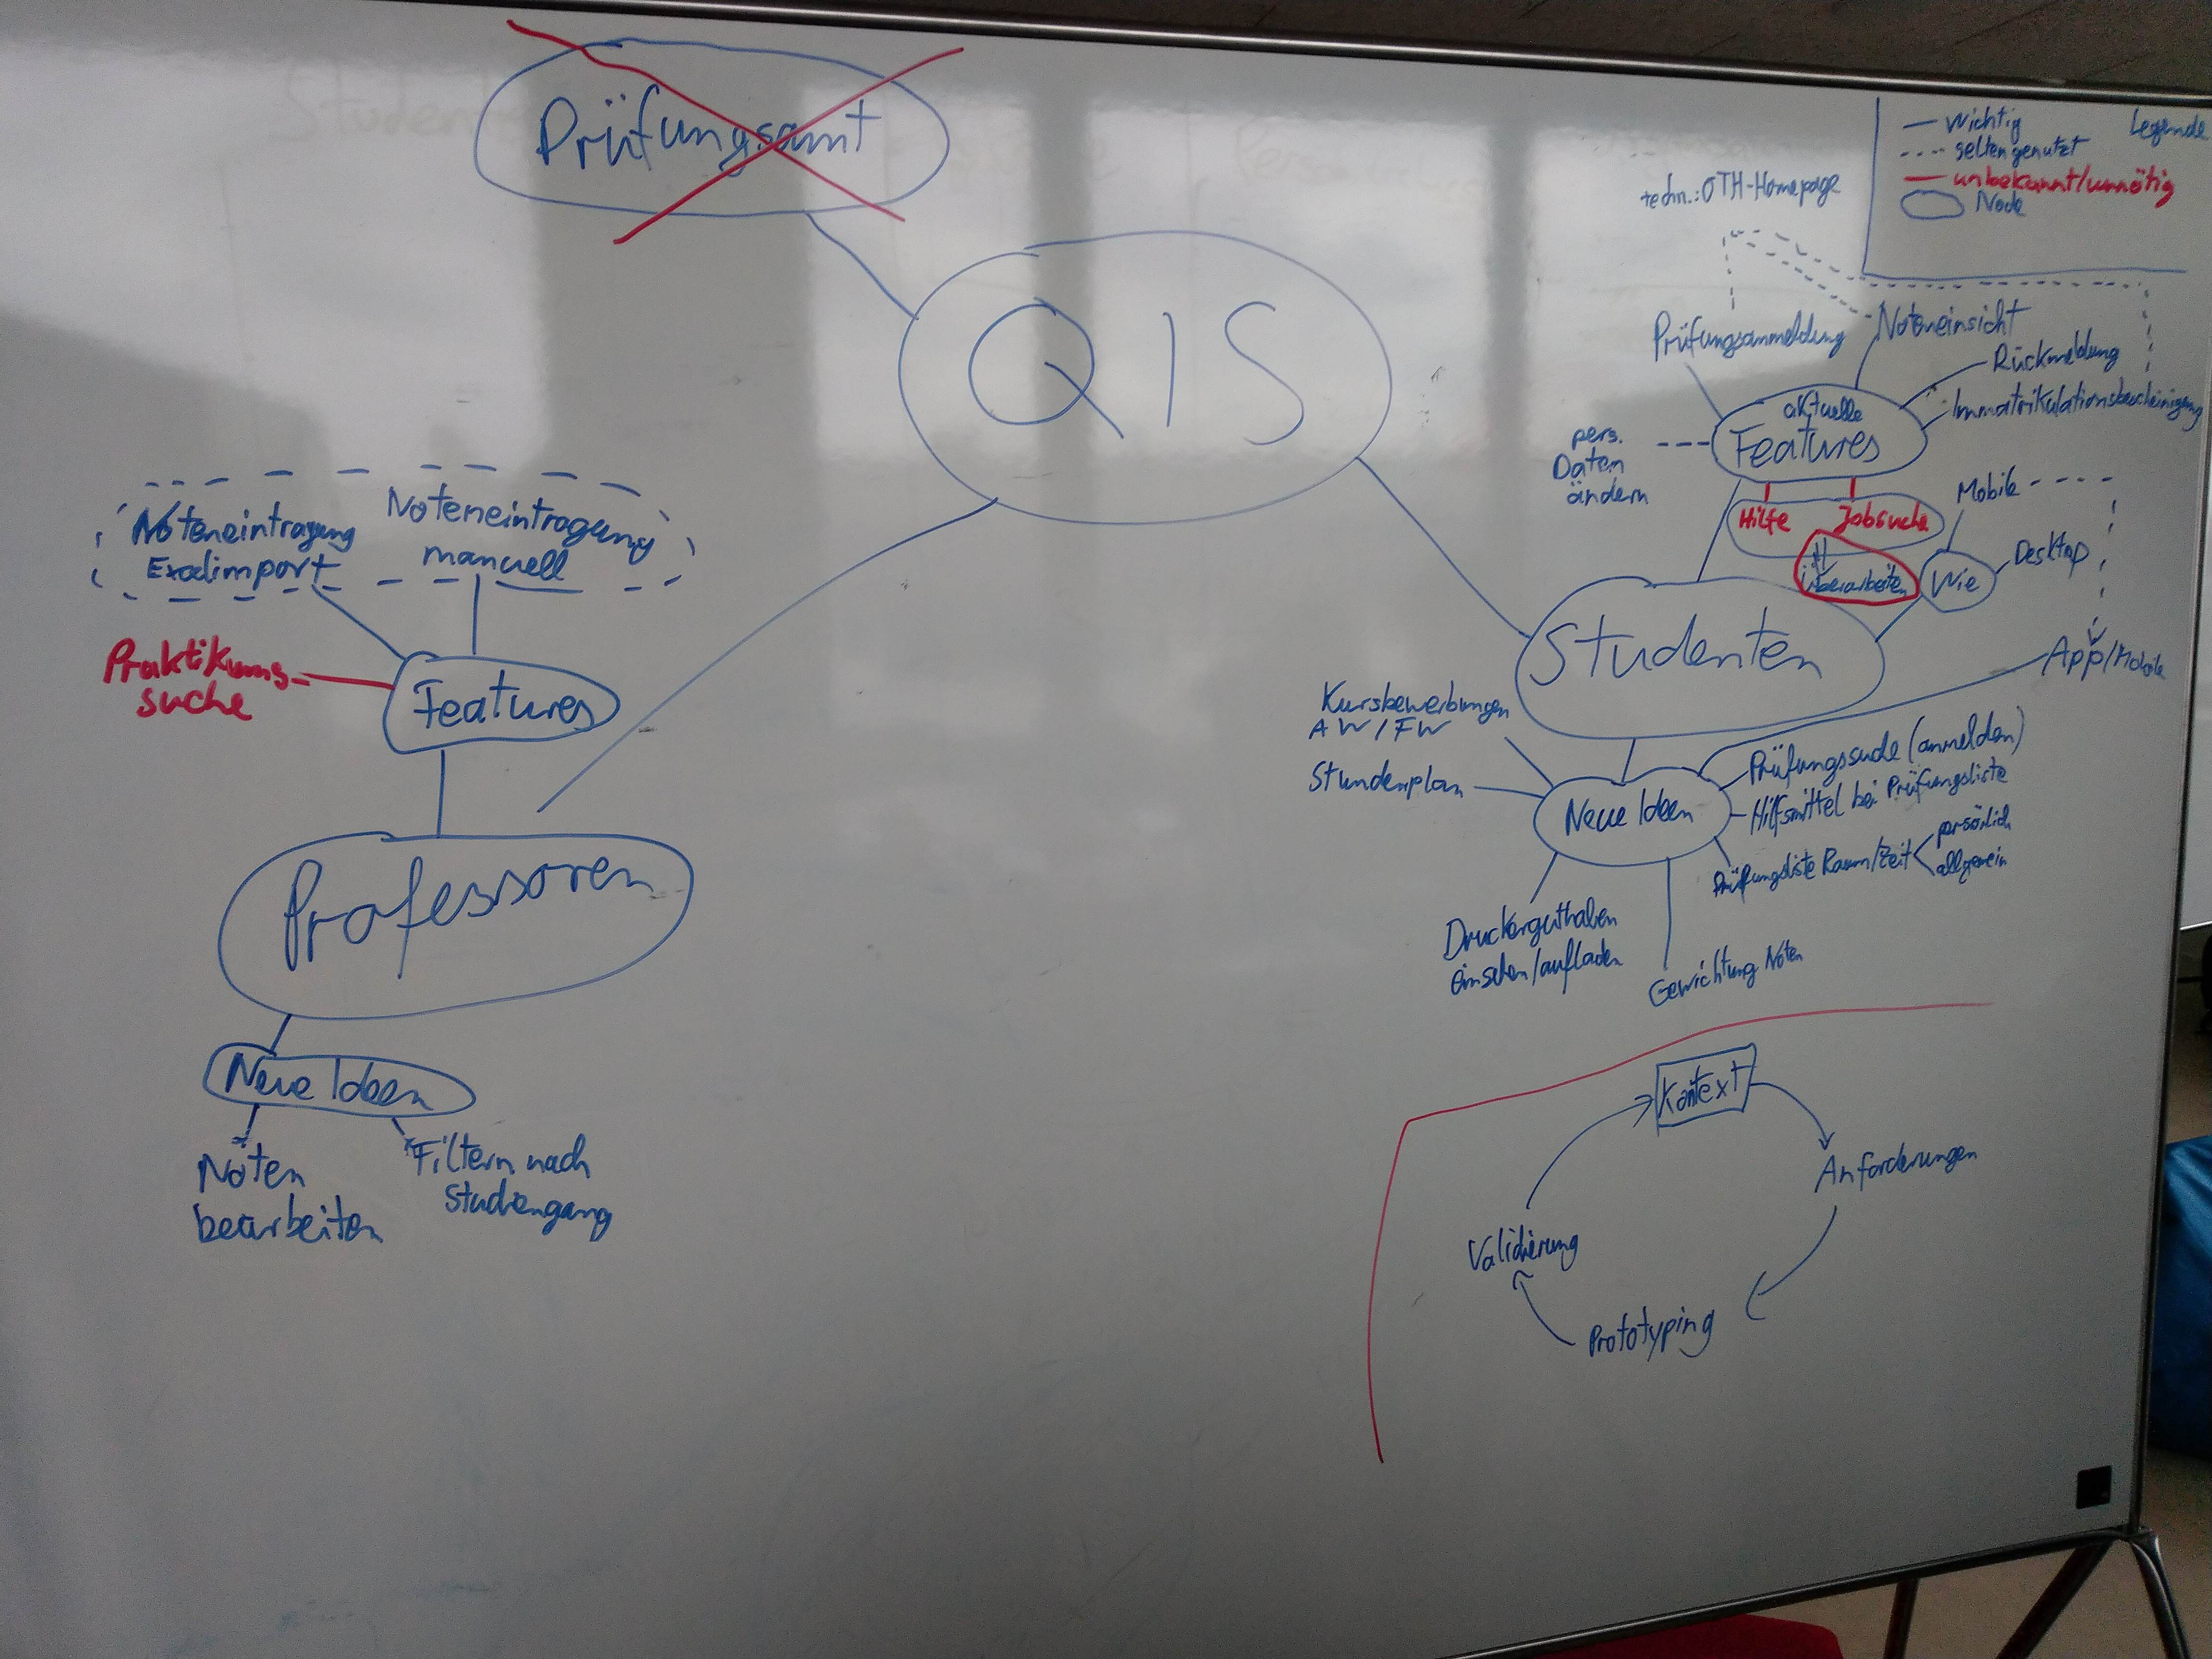 Prüfungsamt
QIS
Legende
wichtig
selten genutzt
unbekannt/unnötig
Node
techn.: OTH-Homepage
Prüfungsanmeldung
Noteneinsicht
Rückmeldung
Immatrikulationsbescheinigung
aktuelle
Features
pers.
Daten
ändern
Hilfe
Jobsuche
überarbeiten
Mobile
Desktop
Wie
Studenten
App/Mobile
Kursbewerbungen
AW/FW
Stundenplan
Neue Ideen
Prüfungssuche (anmelden)
Hilfsmittel bei Prüfungsliste
Prüfungsliste Raum/Zeit
persönlich
allgemein
Druckerguthaben
einsehen/aufladen
Gewichtung Noten
Noteneintragung
Exelimport
Noteneintragung
manuell
Praktikums-
suche
Features
Professoren
Neue Ideen
Noten
bearbeiten
Filtern nach
Studiengang
Kontext
Anforderungen
Prototyping
Validierung